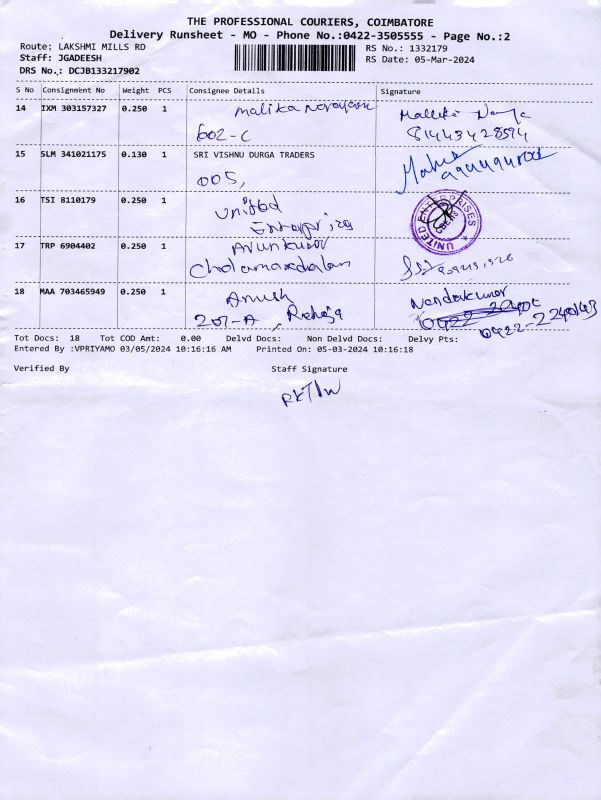 THE PROFESSIONAL COURIERS, COIMBATORE
Delivery Runsheet - MO - Phone No.:0422-3505555 - Page No.:2
Route: LAKSHMI MILLS RD
RS No.: 1332179
Staff: JGADEESH
RS Date: 05-Mar-2024
DRS No.: DCJB133217902
S No Consignment No Weight PCS Consignee Details Signature
14 IXM 303157327 0.250 1 Malika Narayan
602-C
81443428594
15 SLM 341021175 0.130 1 SRI VISHNU DURGA TRADERS
005,
16 TSI 8110179 0.250 1 United
UNITED ENTERPRISES
17 TRP 6904402 0.250 1 Arunkumar
Cholamandalam
18 MAA 703465949 0.250 1 Anush Nandakumar
201-A, Raheja
0422-2240143
Tot Docs: 18 Tot COD Amt: 0.00 Delvd Docs: Non Delvd Docs: Delvy Pts:
Entered By :VPRIYAMO 03/05/2024 10:16:16 AM Printed On: 05-03-2024 10:16:18
Verified By Staff Signature